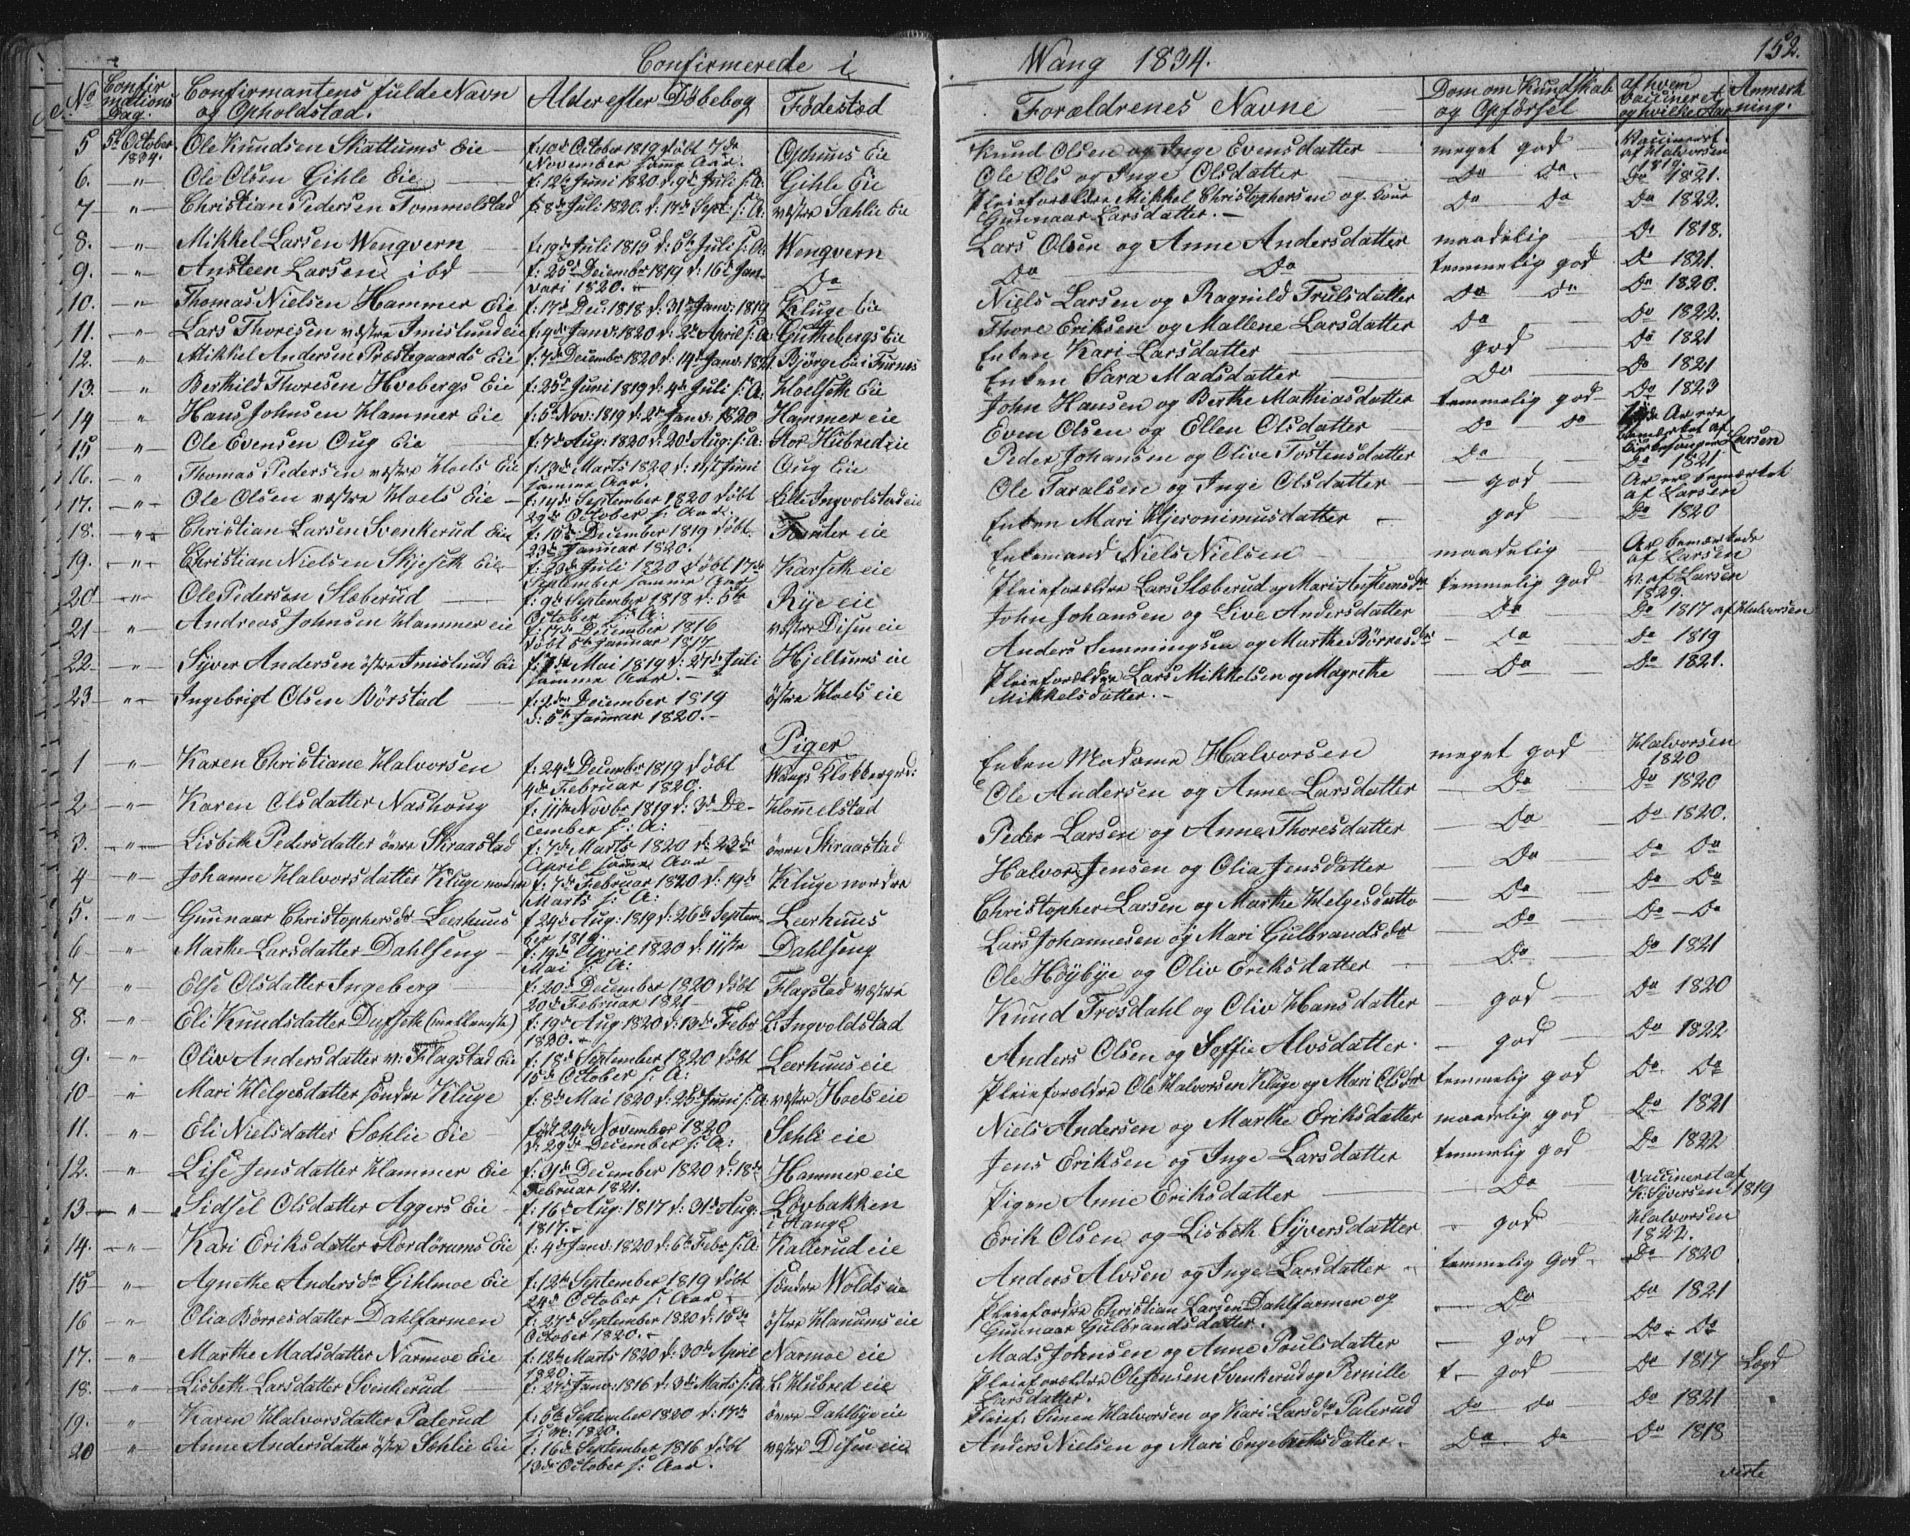 Confirmerede i Wang 1834. 152.
No Confirmations Dag. Confirmantens fulde Navn og Opholdstad. Alder efter Döbebog Födestæd Forældrenes Navne Dom om Kundskab og Opförsel af hvem Vaccineret og hvilke Aar Anmærkning.
5 5te October 1834. Ole Knudsen Skattums Eie f: 10de October 1819 döbt 7de November samme Aar. Opsums Eie Knud Olsen og Inge Evensdatter meget god Vaccineret af Halvorsen 1819
6. -"- Ole Olsen Gihle Eie f: 12te Juni 1820 d: 9de Juli s: A: Gihle Eie Ole Ols og Inge Olsdatter Do Do Do 1821.
7 -"- Christian Pedersen Tommelstad f: 8de Juli 1820. d: 17de Sept: s: A: væstre Sahlie Eie Pleieforældre Mikkel Christophersen og Gunnaar Larsdatter. Do Do Do 1822.
8. -"- Mikkel Larsen Wengvern f: 19de Juli 1819 d: 5te Juli s: A: Wengvern Lars Olsen og Anne Andersdatter maadelig Do 1818.
9. -"- Ansteen Larsen ibd f: 25de December 1819 d: 16de Januari 1820. Do Do Do temmelig god Do 1821.
10. -"- Thomas Nielsen Hammer Eie f: 17de Dec: 1818 d: 31te Janv: 1819 Kluge Eie Niels Larsen og Ragnild Trulsdatter Do Do Do 1820.
11. -"- Lars Thoresen væstre Imislund eie f: 4de Janv: 1820 d: 2de April s: A: Guthebergs Eie Thore Eriksen og Mallene Larsdatter Do Do 1822.
12. -"- Mikkel Andersen Præstegaards Eie f: 7de December 1820 d: 14de Janv: 1821 Bjørge Eie i Furnes Enken Kari Larsdatter god Do 1821
13. -"- Berthild Thoresen Hvebergs Eie f: 25de Juni 1819 d: 4de Juli s: A: Hoelseth Eie Enken Sara Madsdatter Do Do 1821
14 -"- Hans Johnsen Hammer Eie f: 5te Nov: 1819 d: 2de Janv: 1820 Hammer eie John Hansen og Berthe Mathiasdatter temmelig god Do 1823
15 -"- Ole Evensen Oug Eie f: 7de Aug: 1820 d: 20de Aug: s: A: Stor Hubred eie Even Olsen og Ellen Olsdatter Do Do Ar ere bemærket af Kirkesanger Larsen
16. -"- Thomas Pedersen væstre Hoels Eie f: 13de Marts 1820 d: 11te Juni samme Aar. Oug Eie Peder Johansen og Olive Tostensdatter Do Do 1821
17. -"- Ole Olsen væstre Hoels Eie f: 14de September 1820 döbt 29de October s: Aar. Lille Ingvolstad eie Ole Taralsen og Inge Olsdatter god Ar er bemærket af Larsen
18. -"- Christian Larsen Svenkerud Eie f: 10de December 1819 döbt 23de Januar 1820. Tomter eie Enken Mari Hjeronimusdatter god Do 1820
19. -"- Christian Nielsen Skjeseth Eie f: 23de Juli 1820 döbt 17de September samme Aar Karseth eie Enkemand Niels Nielsen maadelig Ar bemærkede af Larsen
20 -"- Ole Pedersen Slæberud f: 9de September 1818 d: 5te October s: A: Rye eie Pleieforældre Lars Slæberud og Mari Anstensdr temmelig god V: af Larsen 1829.
21 -"- Andreas Johnsen Hammer eie f: 17de December 1816 döbt 5te Januar 1817 væstre Disen eie John Johansen og Live Andersdatter Do Do 1817 af Halvorsen
22. -"- Syver Andersen østre Imislund Eie f: 1de Mai 1819 d: 27de Juli samme Aar. Hjellums eie Anders Semmingsen og Marthe Börresdr Do Do 1819
23 -"- Ingebrigt Olsen Börstad f: 2den December 1819 d: 5te Januar 1820. östre Hoels eie Pleieforældre Lars Mikkelsen og Magrethe Mikkelsdatter. Do Do 1821.
Piger
1 -"- Karen Christiane Halvorsen f: 24de December 1819 döbt 4de Februar 1820. Wangs Klokkergrd: Enken Madame Halvorsen meget god Halvorsen 1820
2 -"- Karen Olsdatter Nashoug f: 11te Novbr 1819 d: 3de December s: A: Hommelstad Ole Andersen og Anne Larsdatter Do Do 1820
3. -"- Lisbeth Pedersdatter övre Skraastad f: 7de Marts 1820 d: 23de April samme Aar övre Skraastad Peder Larsen og Anne Thoresdatter Do Do 1820.
4 -"- Johanne Halvorsdatter Kluge nordre f: 7de Februar 1820 d: 19de Marts s: A: Kluge nordre Halvor Jensen og Olia Jensdatter Do Do Do
5. -"- Gunnaar Christophersdr Leerhuus f: 24de Aug: 1819 d: 26de September 1819. Leerhuus Christopher Larsen og Marthe Helgesdatter Do Do Do
6 -"- Marthe Larsdatter Dahlseng f: 19de April 1820 d: 11te Mai s: A: Dahlseng Lars Johannesen og Mari Gulbrandsdr Do Do Do
7 -"- Else Olsdatter Ingeberg f: 20de December 1820 döbt 20de Februar 1821 Flagstad væstre Ole Höybye og Oliv Eriksdatter Do Do 1821
8. -"- Eli Knudsdatter Dufseth (mellemste) f: 19de Aug 1820 d: 13de Febr 1820. L. Ingvoldstad Knud Frosdahl og Oliv Hansdatter god Do 1820
9. -"- Oliv Andersdatter v: Flagstad Eie f: 18de September 1820 döbt 15de October s: A: Leerhuus eie Anders Olsen og Soffie Alvsdatter. god Do 1822
10 " Mari Helgesdatter söndre Kluge f: 8de Mai 1820 d: 25de Juni s: A. væstre Hoels eie Pleieforældre Ole Halvorsen Kluge og Mari Olsdtr temmelig god Do Do
11. -"- Eli Nielsdatter Sæhlie Eie född 24de November 1820 d: 29de December s: A: Sæhli eie Niels Andersen og Marthe Eriksdatter maadelig god Do 1821
12. -"- Lise Jensdatter Hammer Eie f: 31te December 1820 d: 18de Februar 1821. Hammer eie Jens Eriksen og Inge Larsdatter temmelig god Do 1822
13. -"- Sidsel Olsdatter Aggers Eie f: 16de Aug: 1817 d: 31te Aug: 1817. Lövbakken i Stange Pigen Anne Eriksdatter Do Vaccineret af K: Syversen 1819
14. -"- Kari Eriksdatter Stordörums Eie f: 4de Janv: 1820 d: 6te Febr s: A: Kallerud eie Erik Olsen og Lisbeth Syversdatter god Halvorsen 1822.
15 -"- Agnethe Andersdr Gihlmoe Eie f: 12te September 1819 döbt 24de October s: Aar söndre Wolds eie Anders Alvsen og Inge Larsdatter temmelig God Do 1820
16 " Olia Börresdatter Dahlfarmen f: 27de September 1820 d: 15de October 1820. östre Hanums eie Pleieforældre Christian Larsen Dahlfarmen og Gunnaar Gulbrandsdatter. Do Do 1821
17. " Marthe Madsdatter Narmoe Eie f: 12te Marts 1820 d: 30de April 1820. Narmoe eie Mads Johnsen og Anne Poulsdatter god Do Do
18. " Lisbeth Larsdatter Svenkerud f: 27de Janv: 1816 d: 3de Marts s: A: L. Hubred eie Pleieforældre Ole Jensen Svenkerud og Pernille Larsdatter. t. god Do 1817 Lægd
19. " Karen Halvorsdatter Palerud f: 5te September 1820 d: 17de 1820. övre Dahlbye eie Pleief: Simen Halvorsen og Kari Larsdr Palerud Do Do Do 1821
20 " Anne Andersdatter östre Sæhlie Eie f: 16de September 1816 döbt 13de October s: Aar. væstre Disen eie Anders Nielsen og Mari Engebriktsdatter. Do Do Do 1818
verte